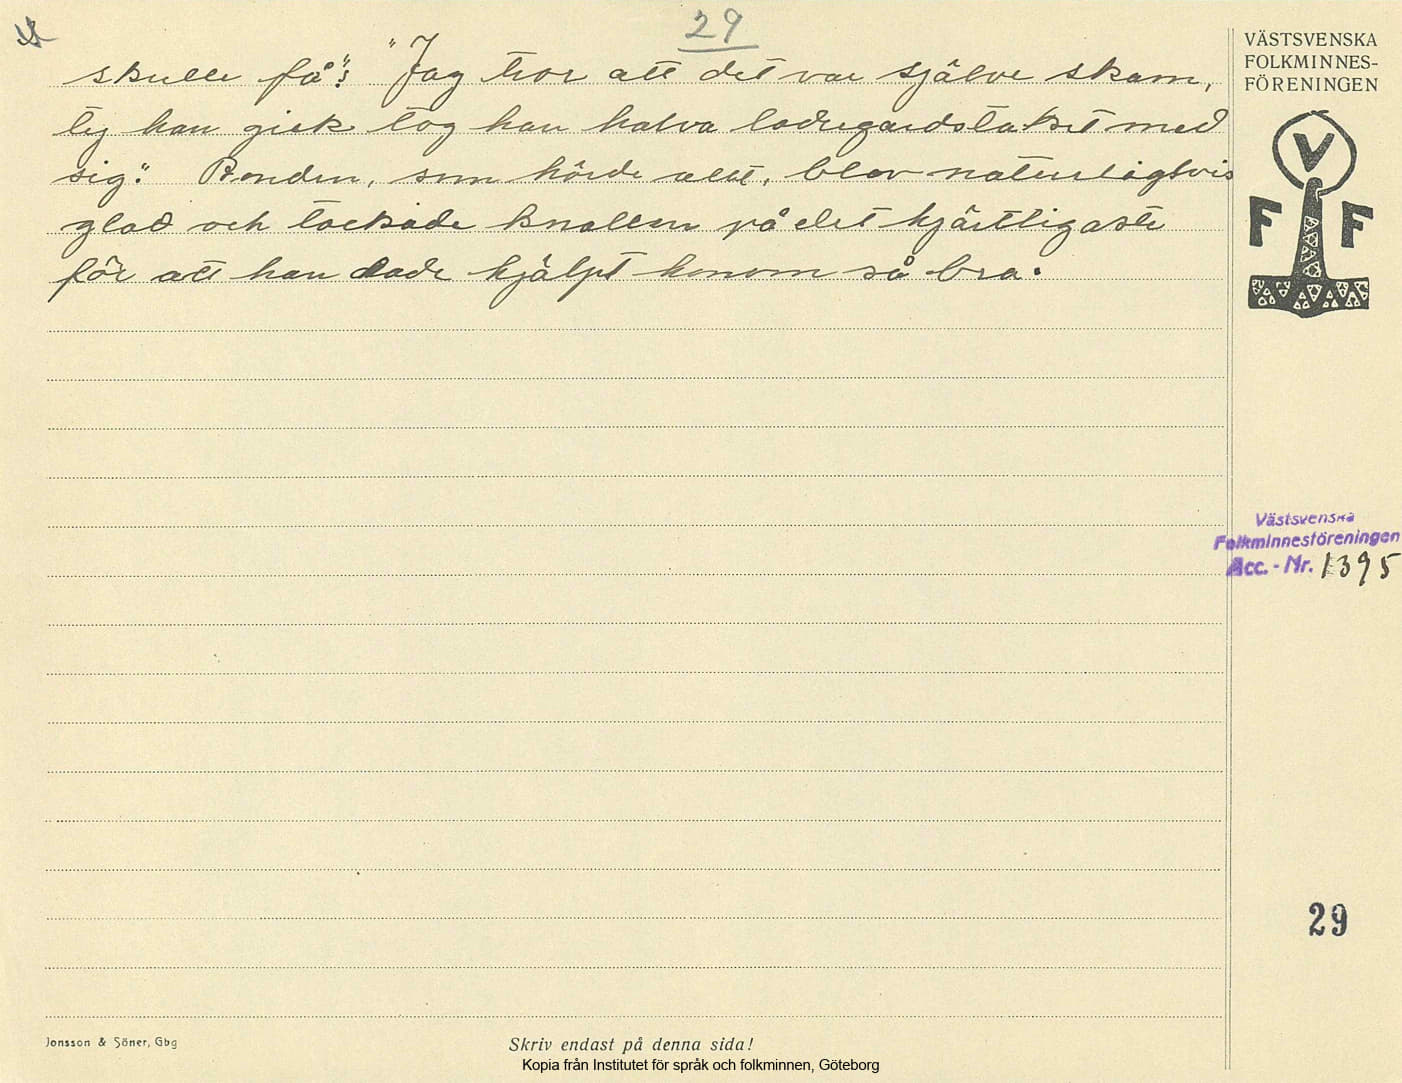 29
skulle få". "Jag tror att det var självе skam,
ty han gick tog han halva ladugårdstaket med
sig." Bonden, som hörde allt, blev naturligtvis
glad och tackade knallen på det hjärtligaste
för att han hade hjälpt honom så bra.
VÄSTSVENSKA
FOLKMINNES-
FÖRENINGEN
V
F F
Västsvenska
Folkminnesföreningen
Acc.-Nr. 1395
29
Jonsson & Söner, Gbg
Skriv endast på denna sida!
Kopia från Institutet för språk och folkminnen, Göteborg